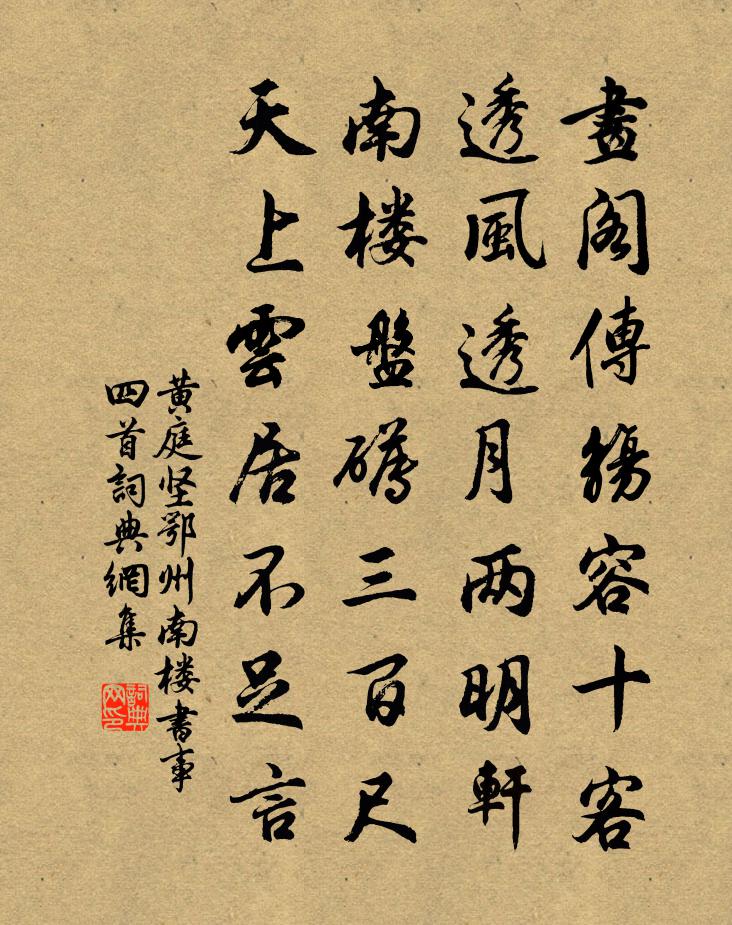 畫閣傳觴容十客
透風透月两明軒
南楼盤礴三百尺
天上雲居不足言
黄庭坚鄂州南楼書事
四首詞典網集
詞典
网印